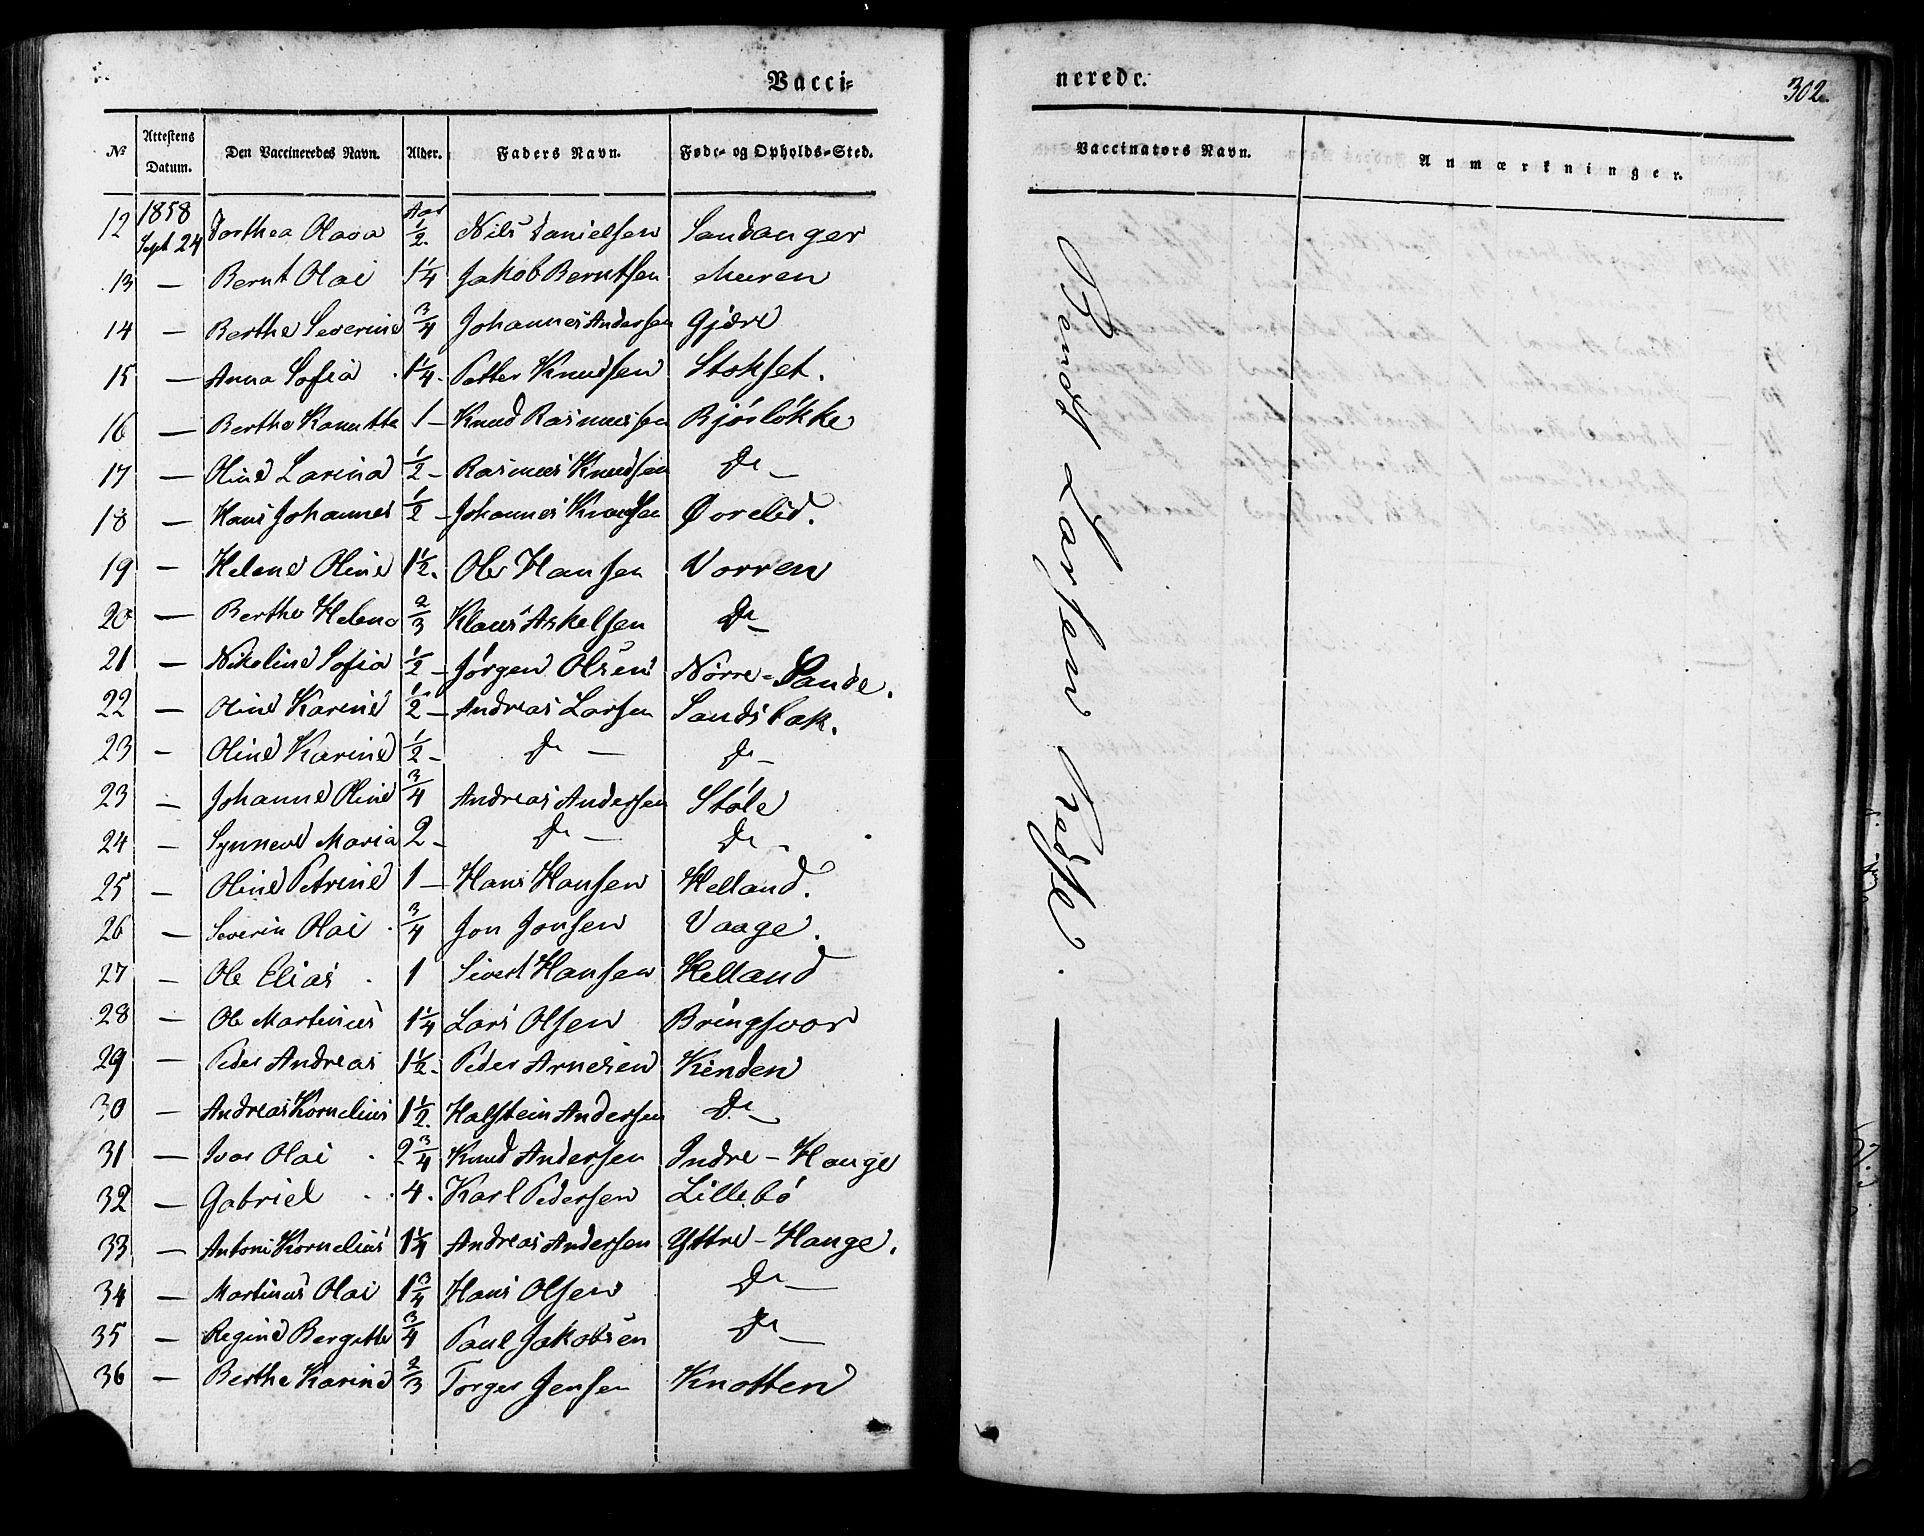 Vacci-
№ Attestens Datum. Den Vaccineredes Navn. Alder. Faders Navn. Føde- og Opholds-Sted.
12 1858 Sept 24 Dorthea Olava Aar ½. Nils Danielsen Sandanger
13 — Bernt Olai 1¼ Jakob Berntsen Muren
14 — Berthe Severine ¾ Johannes Andersen Gjære
15 — Anna Sofia 1¼ Petter Knudsen Stokset.
16 — Berthe Kanutte 1 — Knud Rasmussen Bjørløkke
17 — Oline Larina ½ — Rasmus Knudsen Do —
18 — Hans Johannes ½ — Johannes Knudsen Øvrelid.
19 — Helene Oline 1½. Ole Hansen Vorren
20 — Berthe Helene ⅔ Klaus Askelsen Do —
21 — Nikoline Sofia ½ — Jørgen Olsen Nørre-Sande.
22 — Oline Karine ½ — Andreas Larsen Sandsbak.
23 — Oline Karine ½ — Do — Do —
23 — Johanne Oline ¾ Andreas Andersen Støle
24 — Synneve Maria 2 — Do — Do —
25 — Oline Petrine 1 — Hans Hansen Helland.
26 — Severin Olai ¾ Jon Jonsen Vaage.
27 — Ole Elias 1 Sivert Hansen Helland
28 — Ole Martinus 1¼ Lars Olsen Bringsvor
29 — Peder Andreas 1½. Peder Arnesen Kinden
30 — Andreas Kornelius 1½. Halstein Andersen Do —
31 — Ivar Olai 2¾ Knud Andersen Indre-Hauge
32 — Gabriel 4. Karl Pedersen Lillebø
33 — Antoni Kornelius 1¼ Andreas Andersen Yttre-Hauge.
34 — Martinus Olai 1¾ Hans Olsen Do —
35 — Regine Bergitte ¾ Paul Jakobsen Do —
36 — Berthe Karine ⅔ Torger Jensen Knotten
nerede.
302.
Vaccinators Navn. Anmærkninger.
Bendt Larsen